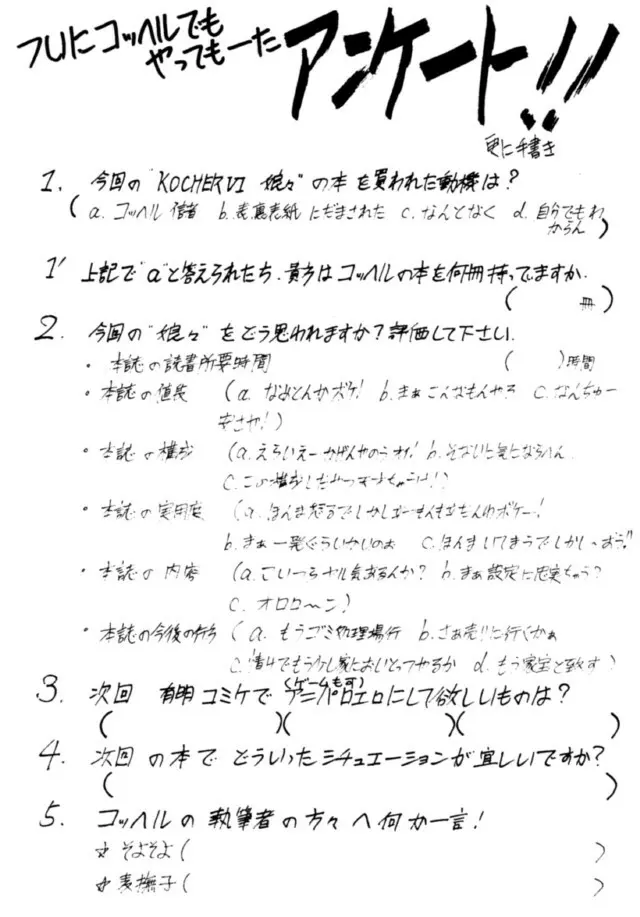 フレにコッヘルでも
やってもーた
アンケート!!
更に手書き
1. 今回の"KOCHER VI 娘々"の本を買われた動機は?
(a. コッヘル信者 b. 表裏表紙にだまされた c. なんとなく d. 自分でもわ
からん)
1' 上記で"a"と答えられたち、貴方はコッヘルの本を何冊持ってますか.
( 冊)
2. 今回の"娘々"をどう思われますか?評価して下さい.
・本誌の読書所要時間 ( )時間
・本誌の値段 (a. なめとんかボケ! b. まぁこんなもんやろ c. なんちゅー
安さや!)
・本誌の構成 (a. えらいえーかげんやのうオイ! b. そないに気にならへん
c.
・本誌の実用度 (a. ほんま怒るでしかし
b. まぁ一発ぐらいかいのぉ c. ほんま
・本誌の内容 (a. こいつら b. まぁ設定に忠実ちゃう?
c. オロロ〜ン)
・本誌の今後の行方 (a. もうゴミ処理場行 b. さぁ売りに行くかぁ
c. 情けでもう少し家においとってやるか d. もう家宝と致す)
3. 次回 有明コミケで アニパロエロにして欲しいものは?
(ゲームも可)
( )( )( )
4. 次回の本でどういったシチュエーションが宜しいですか?
( )
5. コッヘルの執筆者の方々へ何か一言!
☆そよそよ( )
☆麦撫子( )